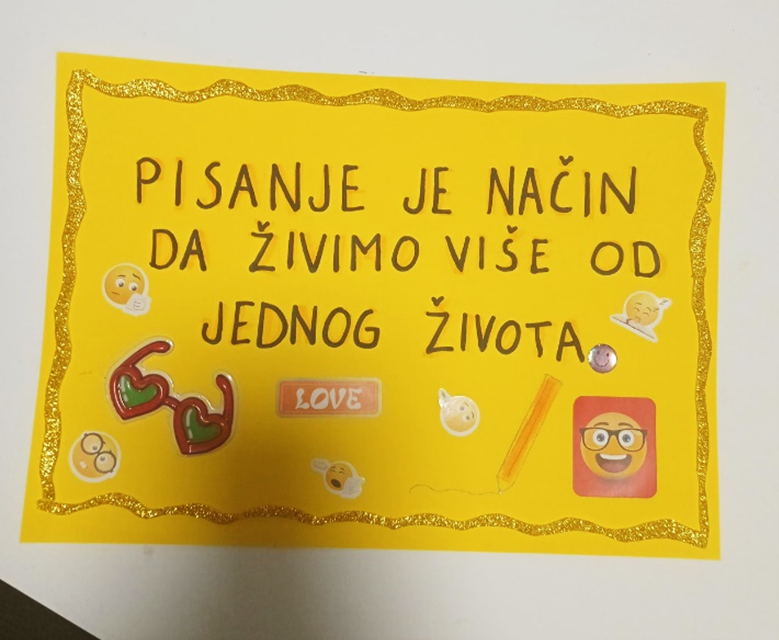 PISANJE JE NAČIN
DA ŽIVIMO VIŠE OD
JEDNOG ŽIVOTA
LOVE